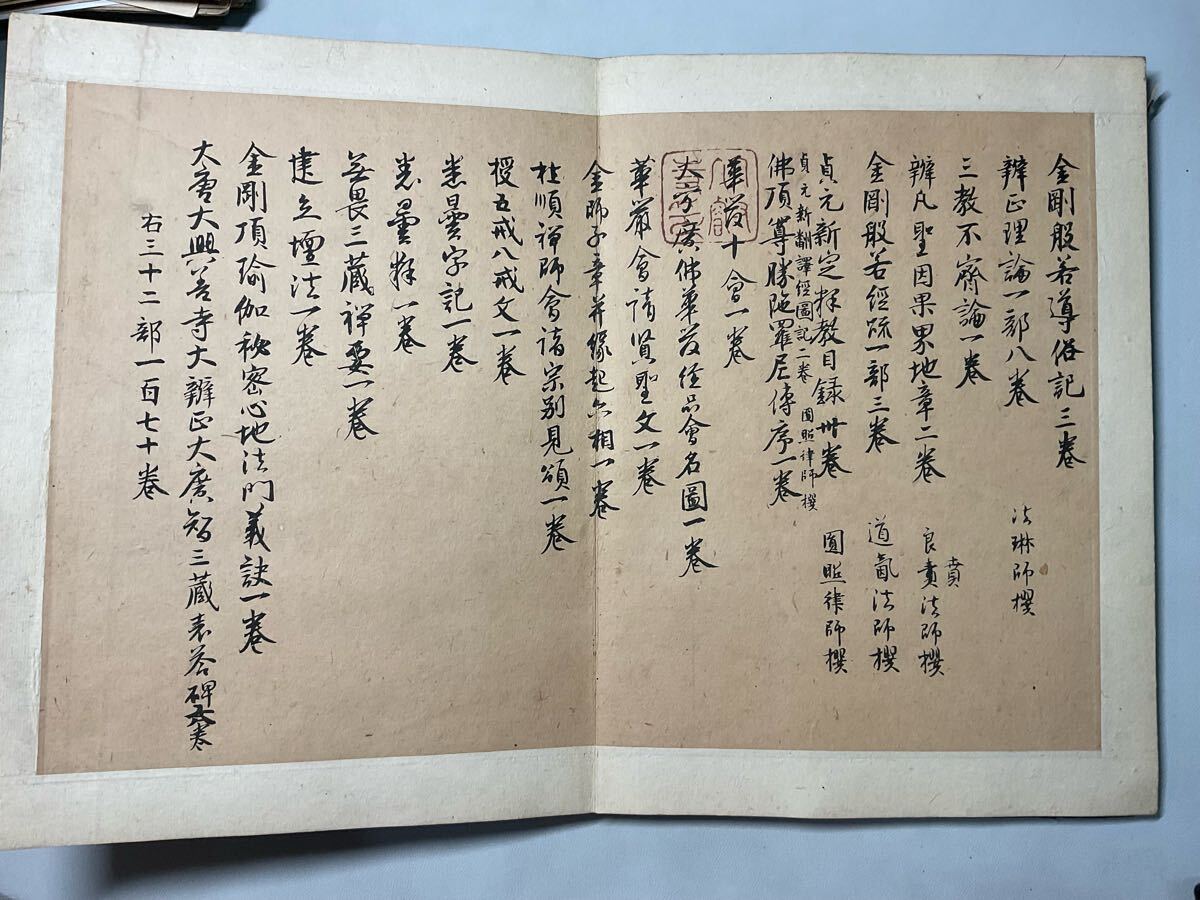 金剛般若導俗記三卷
辨正理論一部八卷 法琳師撰
三教不齊論一卷
辨凡聖因果界地章二卷 良賁法師撰
賁
金剛般若經疏一部三卷 道氤法師撰
貞元新定釋教目録卅卷 圓照律師撰
貞元新翻譯經圖記二卷 圓照律師撰
佛頂尊勝陁羅尼傳序一卷
華嚴十會一卷
大方廣佛華嚴經品會名圖一卷
華嚴會請賢聖文一卷
金師子章并緣起六相一卷
杜順禅師會諸宗別見頌一卷
授五戒八戒文一卷
悉曇字記一卷
悉曇釋一卷
無畏三藏禅要一卷
建立壇法一卷
金剛頂瑜伽秘密心地法門義訣一卷
大唐大興善寺大辨正大廣智三藏表答碑六卷
右三十二部一百七十卷